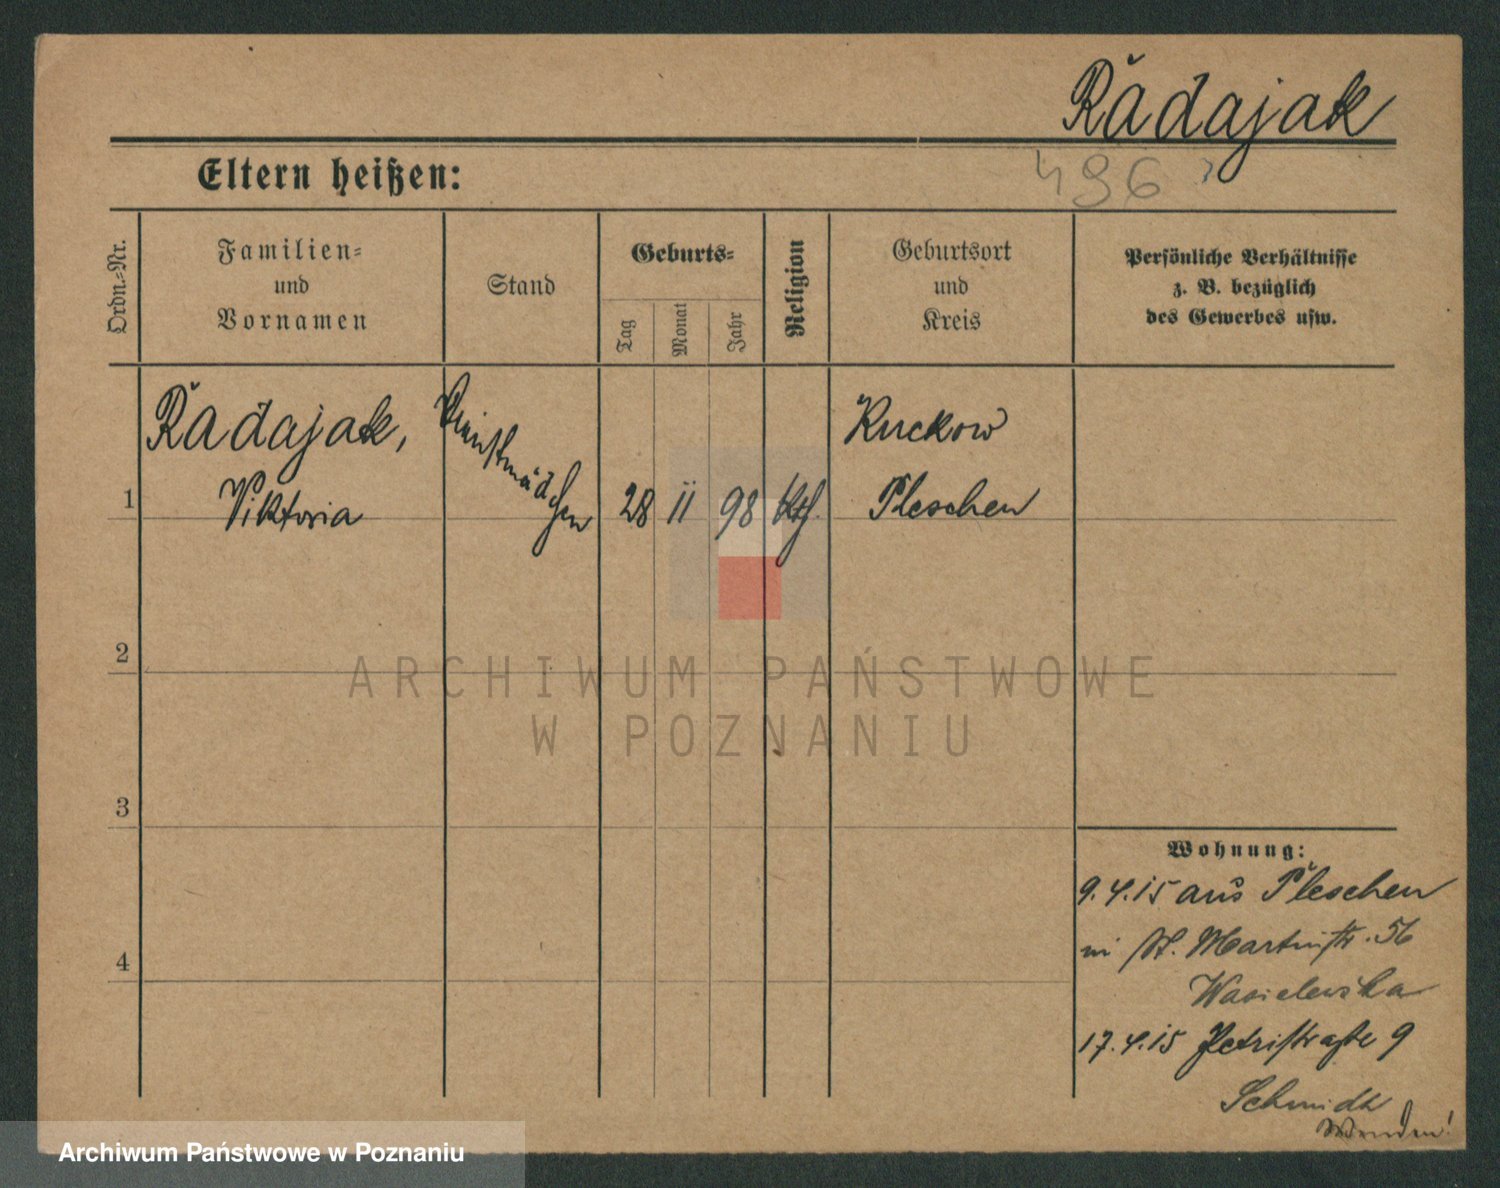 Radajak
496
Eltern heißen:
Ordn.-Nr.
Familien-
und
Vornamen
Stand
Geburts-
Tag
Monat
Jahr
Religion
Geburtsort
und
Kreis
Persönliche Verhältnisse
z. B. bezüglich
des Gewerbes usw.
Radajak,
Viktoria
Dienstmädchen
1
28 11 98 kth.
Kuckow
Pleschen
2
ARCHIWUM PAŃSTWOWE
W POZNANIU
3
Wohnung:
9.4.15 aus Pleschen
in St. Martinstr. 56
Wasielewska
4
17.4.15 Petristraße 9
Schmidt
Wenden!
Archiwum Państwowe w Poznaniu